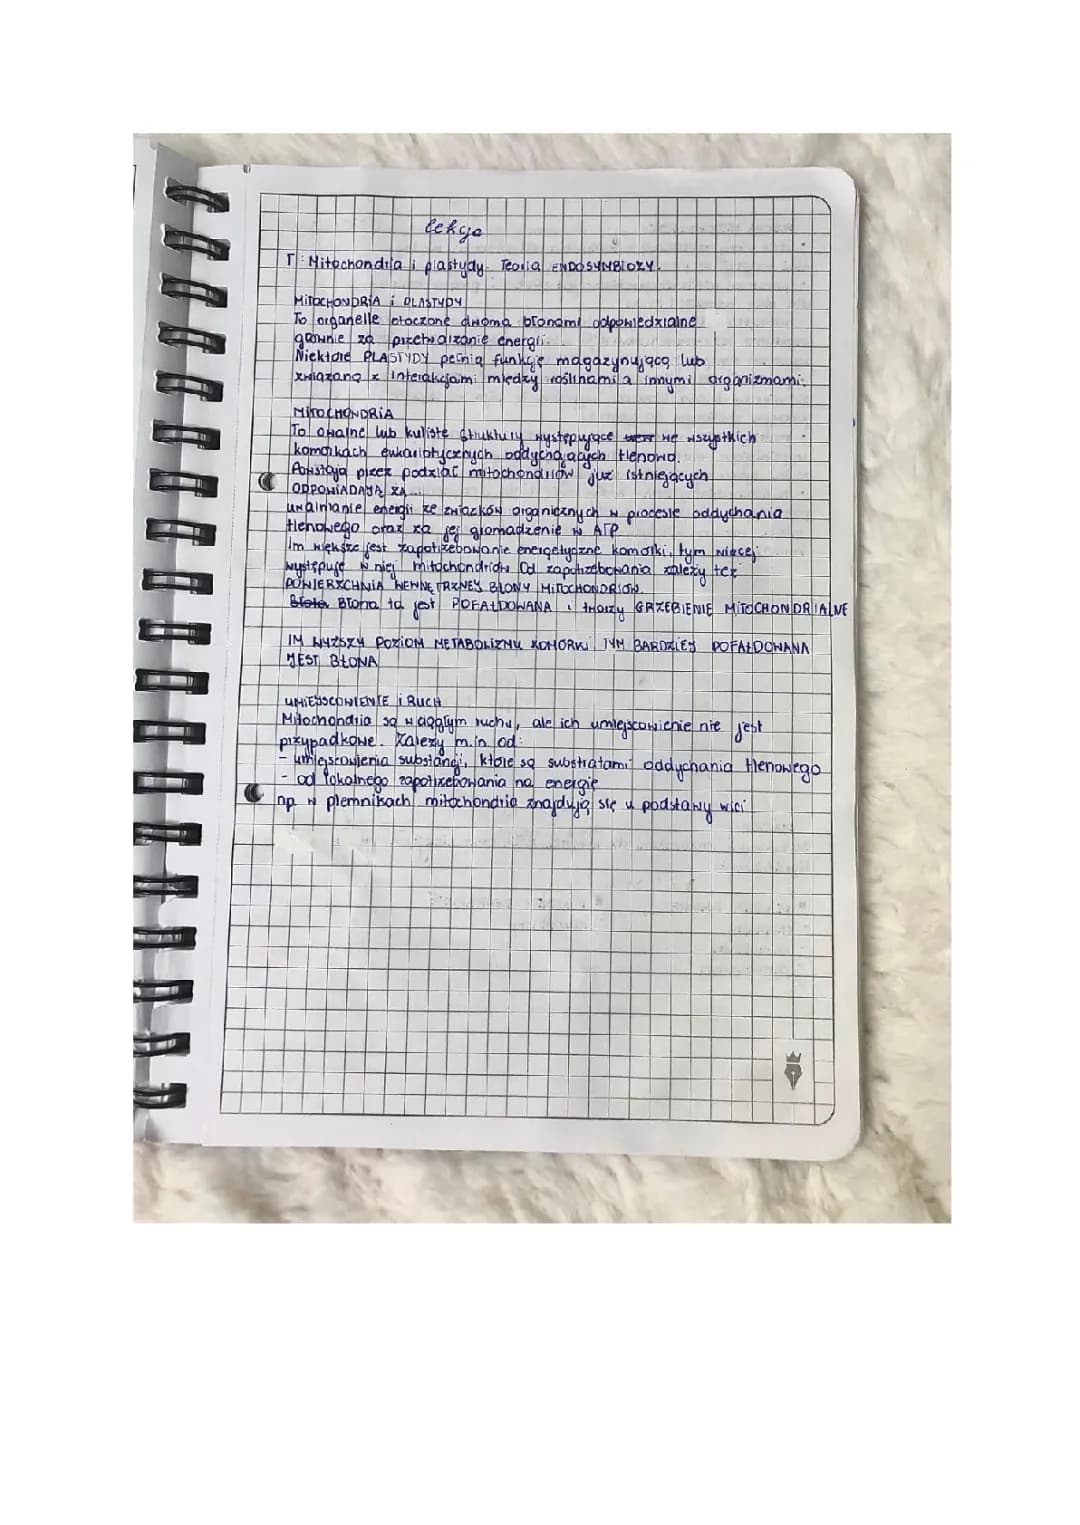 lekcja
T: Mitochondria i plastydy. Teoria ENDOSYMBIOZY.
MITOCHONDRIA i PLASTYDY
To organelle otoczone dwoma błonami odpowiedzialne
głównie za przetwarzanie energii.
Niektóre PLASTYDY pełnią funkcję magazynującą lub
związaną z interakcjami między roślinami a innymi organizmami.
MITOCHONDRIA
To owalne lub kuliste struktury występujące we wszystkich
komórkach eukariotycznych oddychających tlenowo.
Powstają przez podział mitochondriów już istniejących
ODPOWIADAJĄ ZA...
uwalnianie energii ze związków organicznych w procesie oddychania
tlenowego oraz za jej gromadzenie w ATP
Im większe jest zapotrzebowanie energetyczne komórki, tym więcej
występuje w niej mitochondriów. Od zapotrzebowania zależy też
POWIERZCHNIA WEWNĘTRZNEJ BŁONY MITOCHONDRIÓW.
Błona ta jest POFAŁDOWANA i tworzy GRZEBIENIE MITOCHONDRIALNE
IM WYŻSZY POZIOM METABOLIZMU KOMÓRKI TYM BARDZIEJ POFAŁDOWANA
JEST BŁONA
UMIEJSCOWIENIE i RUCH
Mitochondria są w ciągłym ruchu, ale ich umiejscowienie nie jest
przypadkowe. Zależy m.in. od:
- umiejscowienia substancji, które są substratami oddychania tlenowego
- od lokalnego zapotrzebowania na energię
np. w plemnikach mitochondria znajdują się u podstawy wici